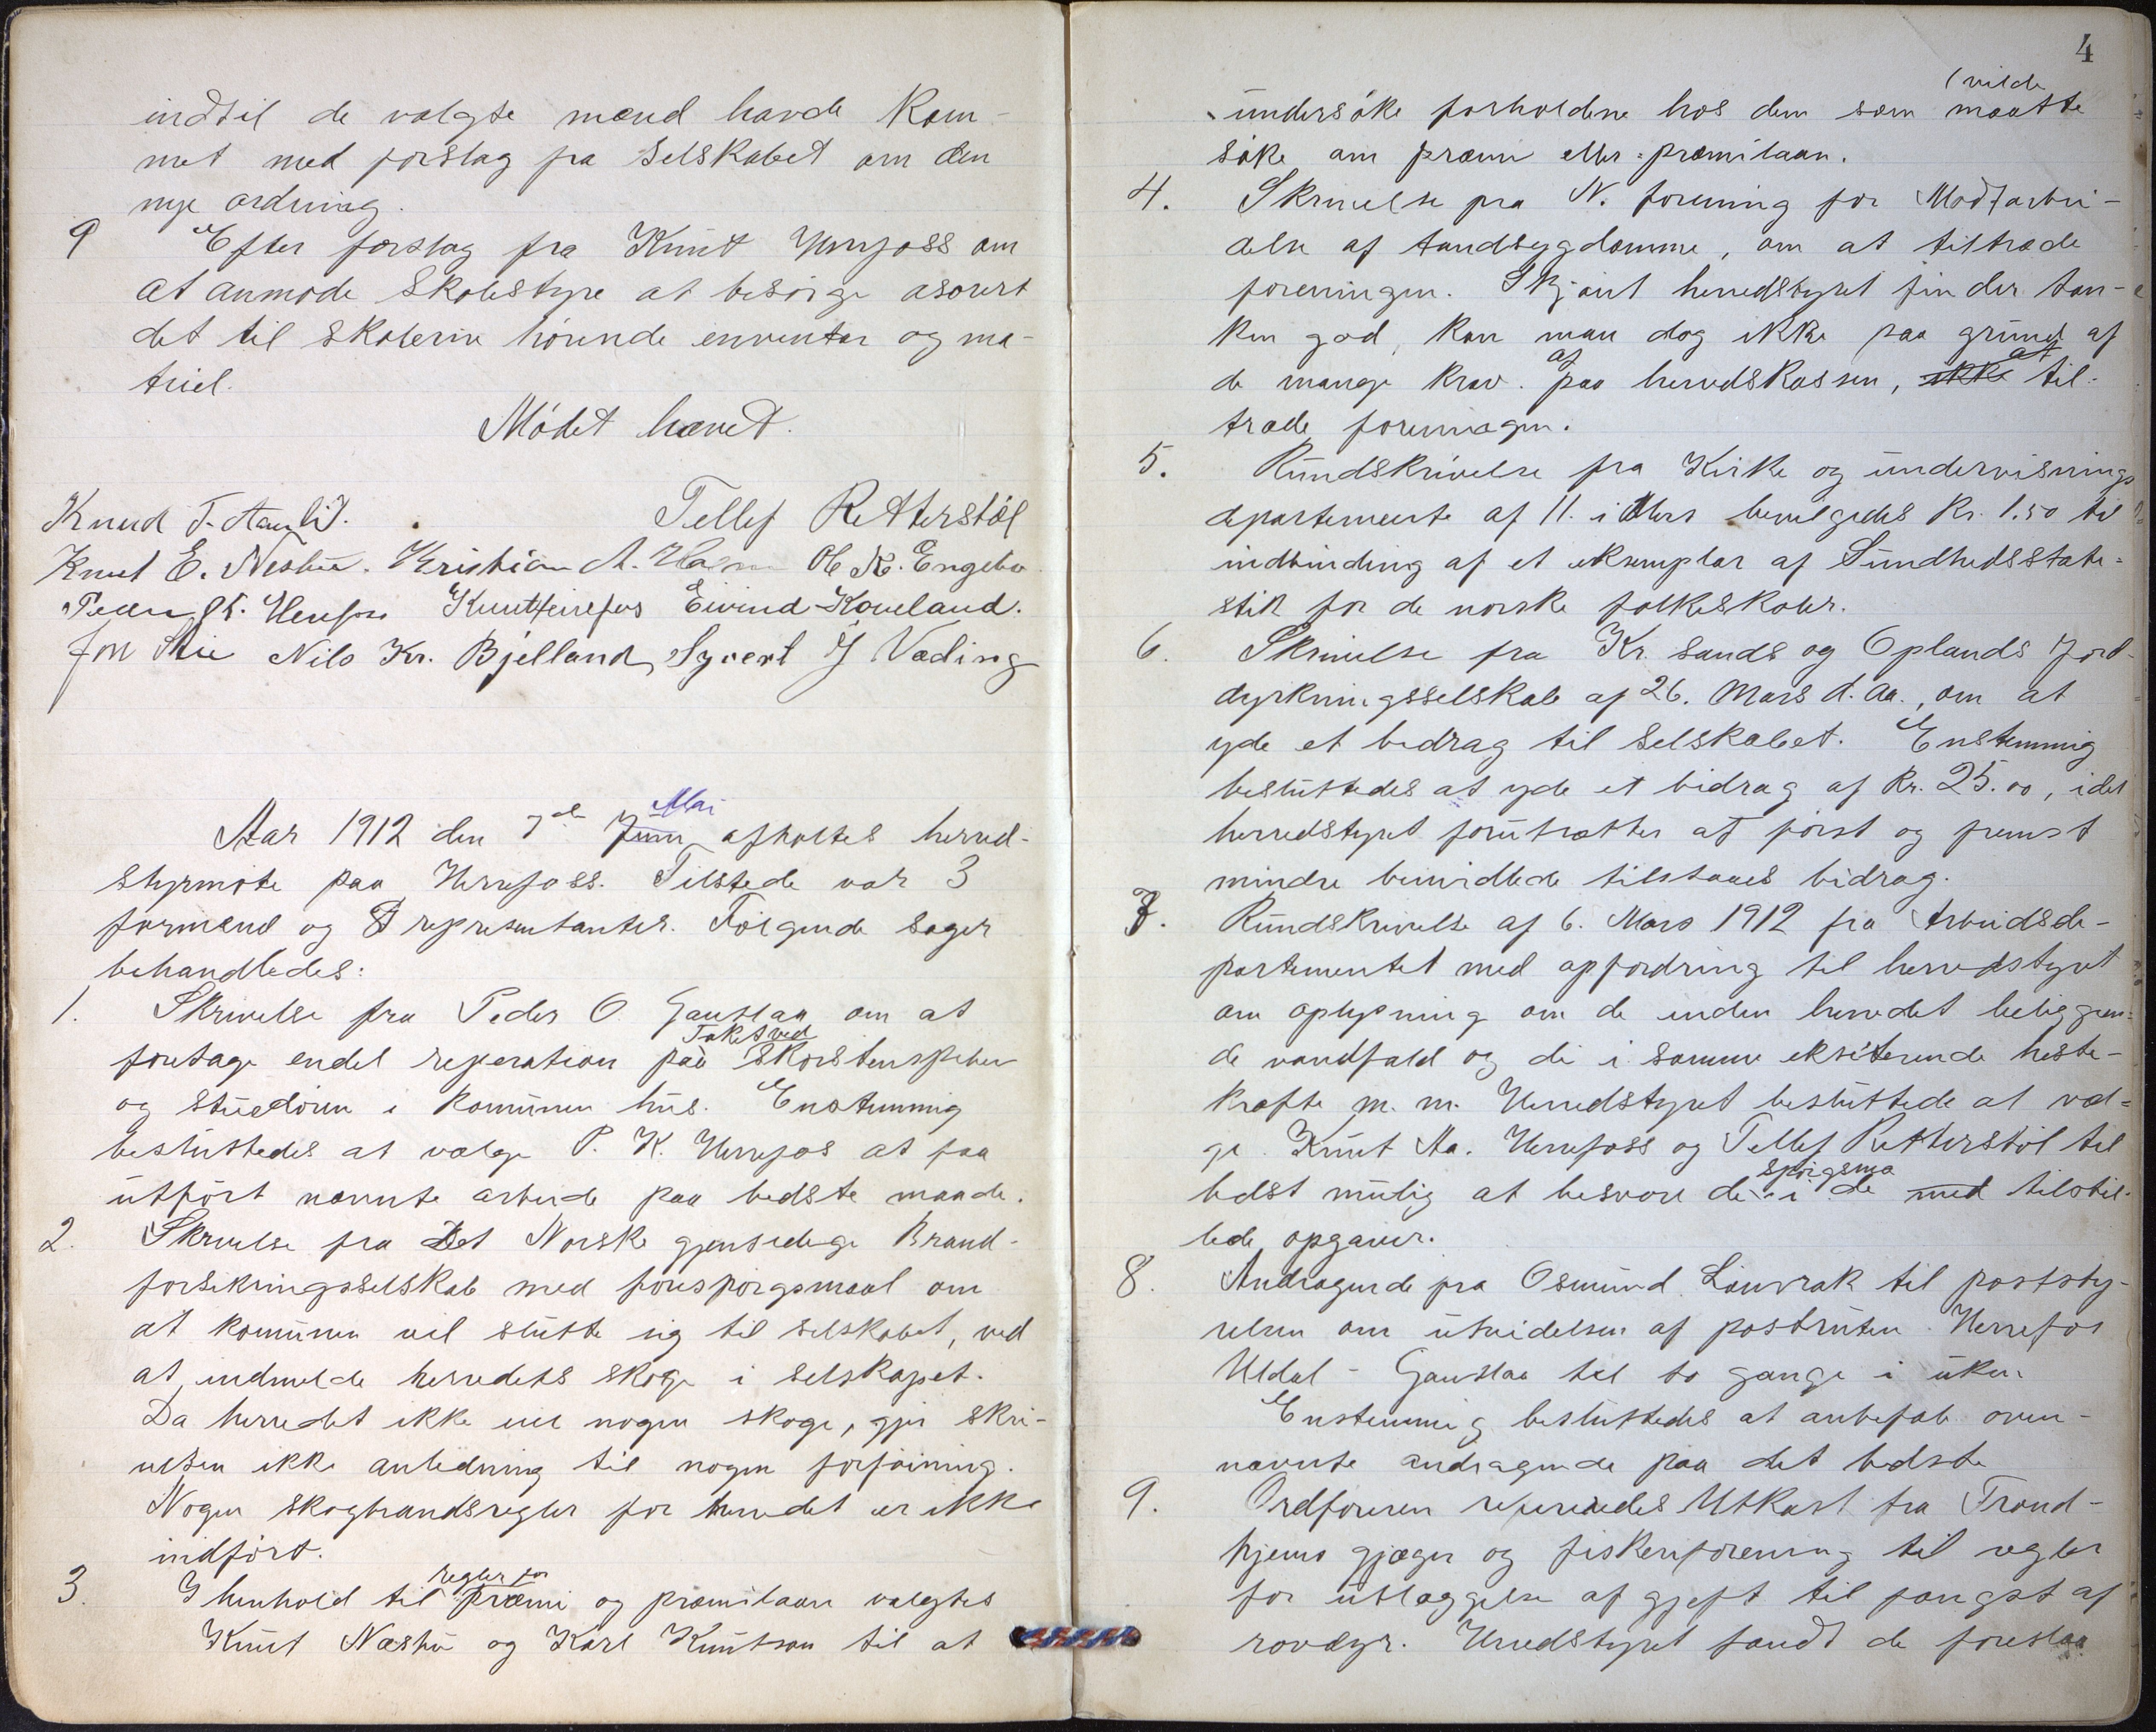 indtil de valgte mænd havde kom-
met med forslag fra Selskabet om den
nye ordning.
9 Efter forslag fra Knut Herefoss om
at anmode Skolestyre at besørge asorert
det til skolerne hørende enventar og ma-
triel.
Mødet hævet.
Knud T. Haugli. Tellef Retterstøl
Knut E. Neshu. Kristian A. Ole K. Engebu
Peder K. Herefos Knut Herrefos Eivind Koveland.
Jon Nils Kr. Bjelland, Syvert J Væding
Aar 1912 den 7de Juni Mai afholtes herred-
styrmøte paa Herrefoss. Tilstede var 3
formænd og 8 representanter. Følgende sager
behandledes:
1. Skrivelse fra Peder O. Gauslaa om at
Taket ved
foretage endel reperation paa Skorstenspiben
og stuedøren i komunen hus. Enstemmig
besluttedes at vælge P. K. Herrefos at faa
utført nævnte arbeide paa bedste maade.
2. Skrivelse fra Det Norske gjensedige Brand-
forsikringsselskab med forespørgsmaal om
at komunen vil slutte sig til selskabet, ved
at indmelde herredets skoge i selskapet.
Da herredet ikke eie nogen skoge, gjir skri-
velsen ikke anledning til nogen forføining.
Nogen skogbrandsregler for herredet er ikke
indført.
regler for
3. I henhold til præmi og præmilaan valgtes
Knut Næshu og Karl Knutson til at
4
(vilde
undersøke forholdene hos dem som maatte
søke om præmi eller præmilaan.
4. Skrivelse fra N. forening for Modarbei-
delse af tandsygdomme, om at tiltræde
foreningen. Skjønt herredstyret finder tan-
ken god, kan man dog ikke paa grund af
de mange krav af paa herredskassen, ikke at til-
træde foreningen.
5. Rundskrivelse fra Kirke og undervisnings
departemente af 11. i Mars bevilgedes Kr. 1.50 til
indbinding af et eksemplar af Sundhedsstate-
stik for de norske folkeskoler.
6. Skrivelse fra Kr. sands og Oplands Jord-
dyrkningsselskab af 26. Mars d. Aa., om at
yde et bedrag til selskabet. Enstemmig
besluttedes at yde et bidrag af Kr. 25.00, idet
herredstyret forutsætter at først og fremst
mindre bemidlede tilstaaes bidrag.
7. Rundskrivelse af 6. Mars 1912 fra Arbeidsde-
partementet med opfordring til herredstyret
om oplysning om de inden herredet beliggen-
de vandfald og de i samme eksiterende heste-
kræfte m. m. Herredstyret besluttede at væl-
ge Knut Aa. Herrefoss og Tellef Retterstøl til
spørgsma
bedst mulig at besvare de i de med tilstil-
lede opgaver.
8. Andragende fra Osmund Løuvrak til poststy-
relsen om utvidelsen af postruten Herrefos
Uldal - Gauslaa til to gange i uken.
Enstemmig besluttedes at anbefale oven-
nævnte andragende paa det bedste
9. Ordføreren refereredes Utkast fra Trond-
hjems gjæger og fiskerforening til regler
for utlæggelse af gjeft til fangst af
rovdyr. Herredstyret fandt de foreslaa